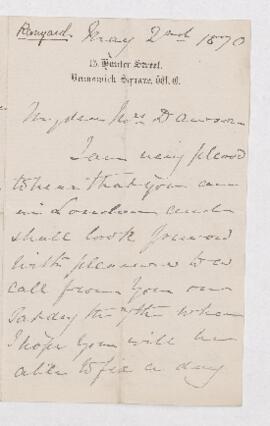 Ranyard. May 2nd 1870
13 Hunter Street,
Brunswick Square, W.C.
My dear Mrs Dawson
I am very pleased
to hear that you are
in London and
shall look forward
with pleasure to a
call from you on
Satday the 7th when
I hope you will be
able to fix a day